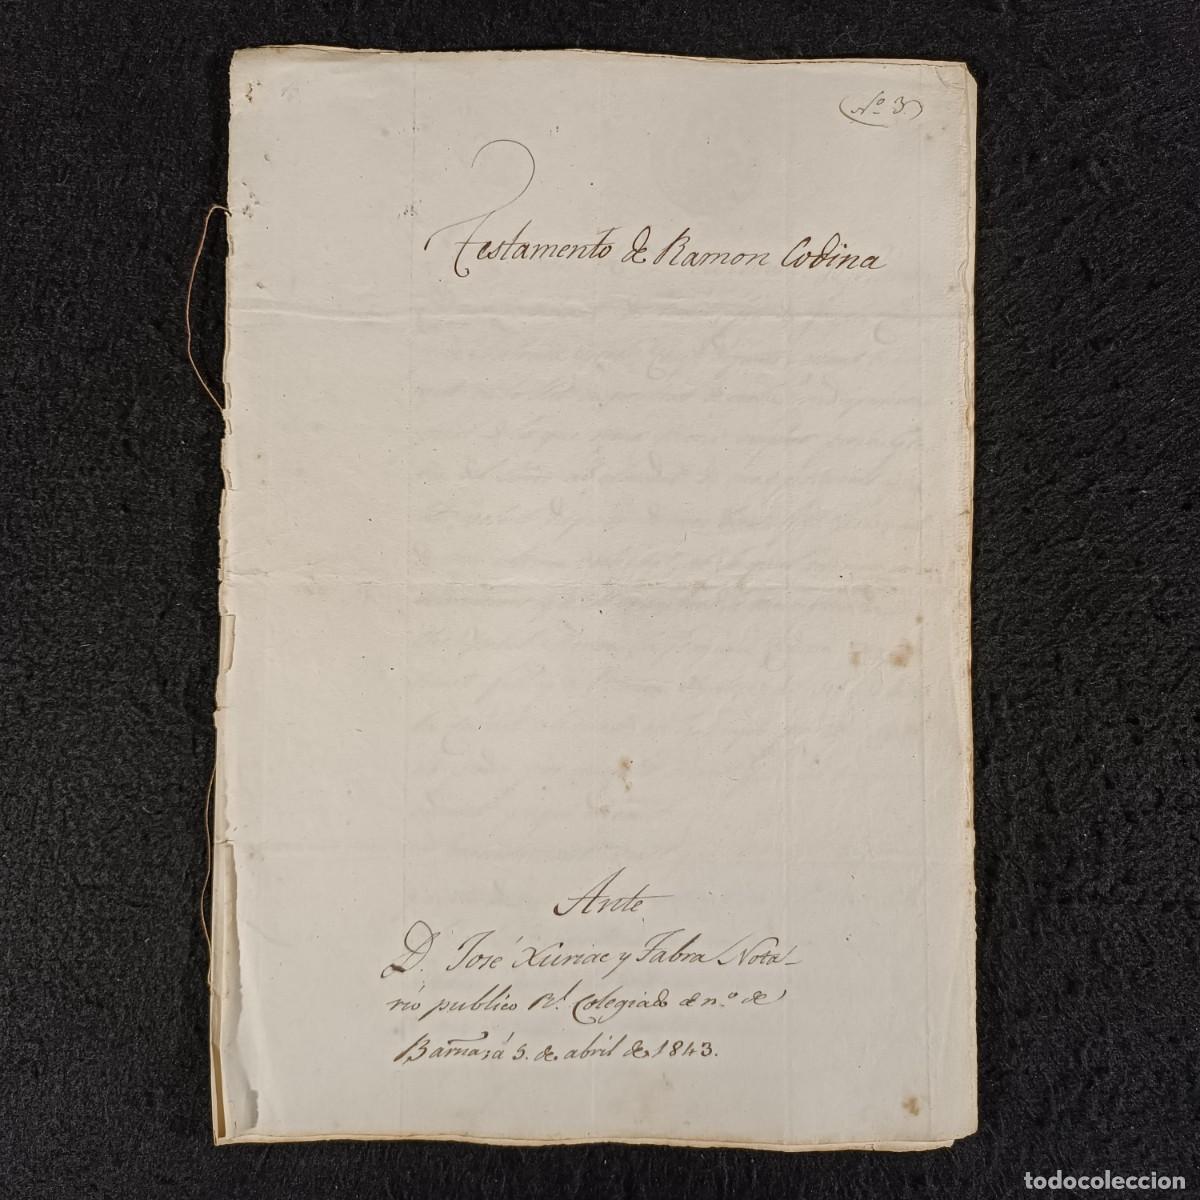 Nº 3.
Testamento de Ramon Codina
Ante
D. José Xuriac y Fabra Nota-
rio publico Rl. Colegiado de nº. de
Barnaá 5. de abril de 1843.
todocoleccion